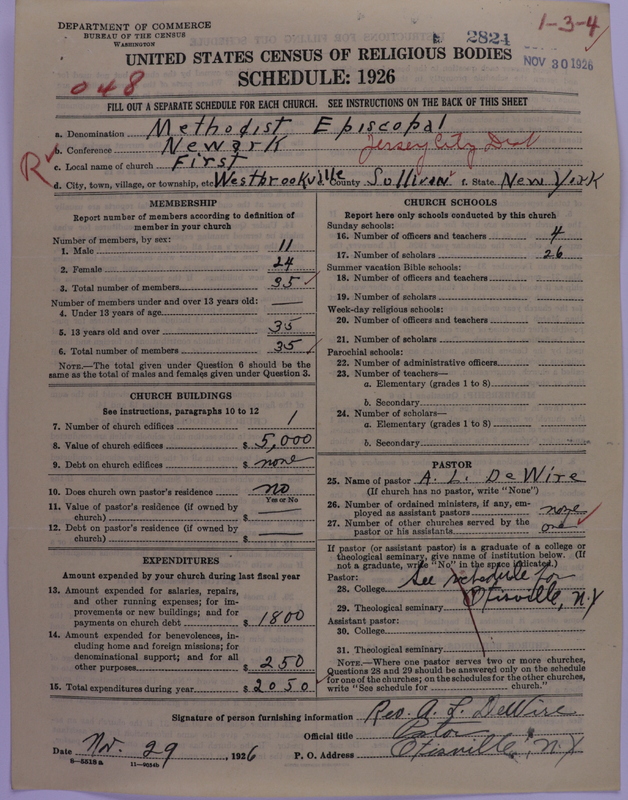 DEPARTMENT OF COMMERCE
BUREAU OF THE CENSUS
WASHINGTON
2824
1-3-4
NOV 30 1926
UNITED STATES CENSUS OF RELIGIOUS BODIES
SCHEDULE: 1926
048
FILL OUT A SEPARATE SCHEDULE FOR EACH CHURCH. SEE INSTRUCTIONS ON THE BACK OF THIS SHEET
a. Denomination Methodist Episcopal
b. Conference Newark Jersey City Dist
R
c. Local name of church First
d. City, town, village, or township, etc. Westbrookville County Sullivan f. State New York
MEMBERSHIP
Report number of members according to definition of
member in your church
Number of members, by sex:
1. Male 11
2. Female 24
3. Total number of members 35
Number of members under and over 13 years old:
4. Under 13 years of age —
5. 13 years old and over 35
6. Total number of members 35
NOTE.—The total given under Question 6 should be
same as the total of males and females given under Question 3.
CHURCH BUILDINGS
See instructions, paragraphs 10 to 12
7. Number of church edifices 1
8. Value of church edifices $ 5,000
9. Debt on church edifices $ none
10. Does church own pastor's residence no
Yes or No
11. Value of pastor's residence (if owned by
church) $ —
12. Debt on pastor's residence (if owned by
church) $ —
EXPENDITURES
Amount expended by your church during last fiscal year
13. Amount expended for salaries, repairs,
and other running expenses; for im-
provements or new buildings; and for
payments on church debt $ 1800
14. Amount expended for benevolences, in-
cluding home and foreign missions; for
denominational support; and for all
other purposes $ 250
15. Total expenditures during year $ 2050
CHURCH SCHOOLS
Report here only schools conducted by this church
Sunday schools:
16. Number of officers and teachers 4
17. Number of scholars 26
Summer vacation Bible schools:
18. Number of officers and teachers
19. Number of scholars
Week-day religious schools:
20. Number of officers and teachers
21. Number of scholars
Parochial schools:
22. Number of administrative officers
23. Number of teachers—
a. Elementary (grades 1 to 8)
b. Secondary
24. Number of scholars—
a. Elementary (grades 1 to 8)
b. Secondary
PASTOR
25. Name of pastor A. L. DeWire
(If church has no pastor, write "None")
26. Number of ordained ministers, if any, em-
ployed as assistant pastors none
27. Number of other churches served by the
pastor or his assistants one
If pastor (or assistant pastor) is a graduate of a college or
theological seminary, give name of institution below. (If
not a graduate, write "No" in the space indicated.)
Pastor: See schedule for
28. College Otisville, N.Y
29. Theological seminary
Assistant pastor:
30. College
31. Theological seminary
NOTE.—Where one pastor serves two or more churches,
Questions 28 and 29 should be answered only on the schedule
for one of the churches; on the schedules for the other churches,
write "See schedule for church."
Signature of person furnishing information Rev. A. L. DeWire
Official title Pastor
Date Nov. 29, 1926 P. O. Address Otisville, N.Y
8—5518a 11—9054b